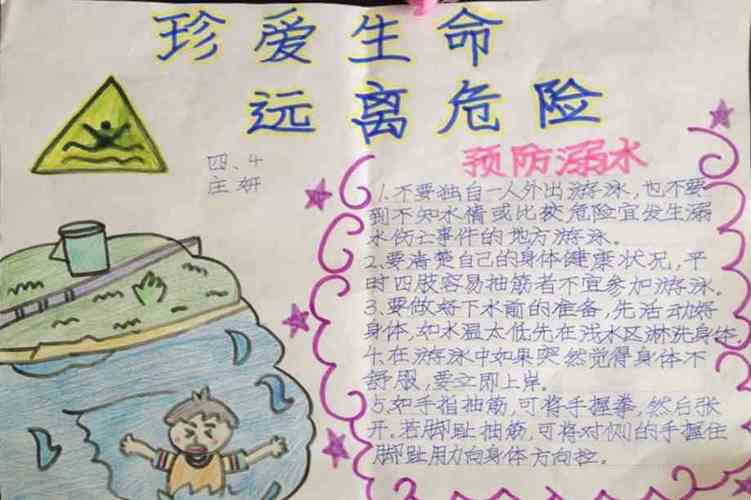 珍爱生命
远离危险
四、4
庄妍
预防溺水
1.不要独自一人外出游泳,也不要
到不知水情或比较危险宜发生溺
水伤亡事件的地方游泳。
2.要清楚自己的身体健康状况,平
时四肢容易抽筋者不宜参加游泳。
3.要做好下水前的准备,先活动好
身体,如水温太低先在浅水区淋洗身体
4.在游泳中如果突然觉得身体不
舒服,要立即上岸。
5.如手指抽筋,可将手握拳,然后张
开.若脚趾抽筋,可将对侧的手握住
脚趾用力向身体方向拉。